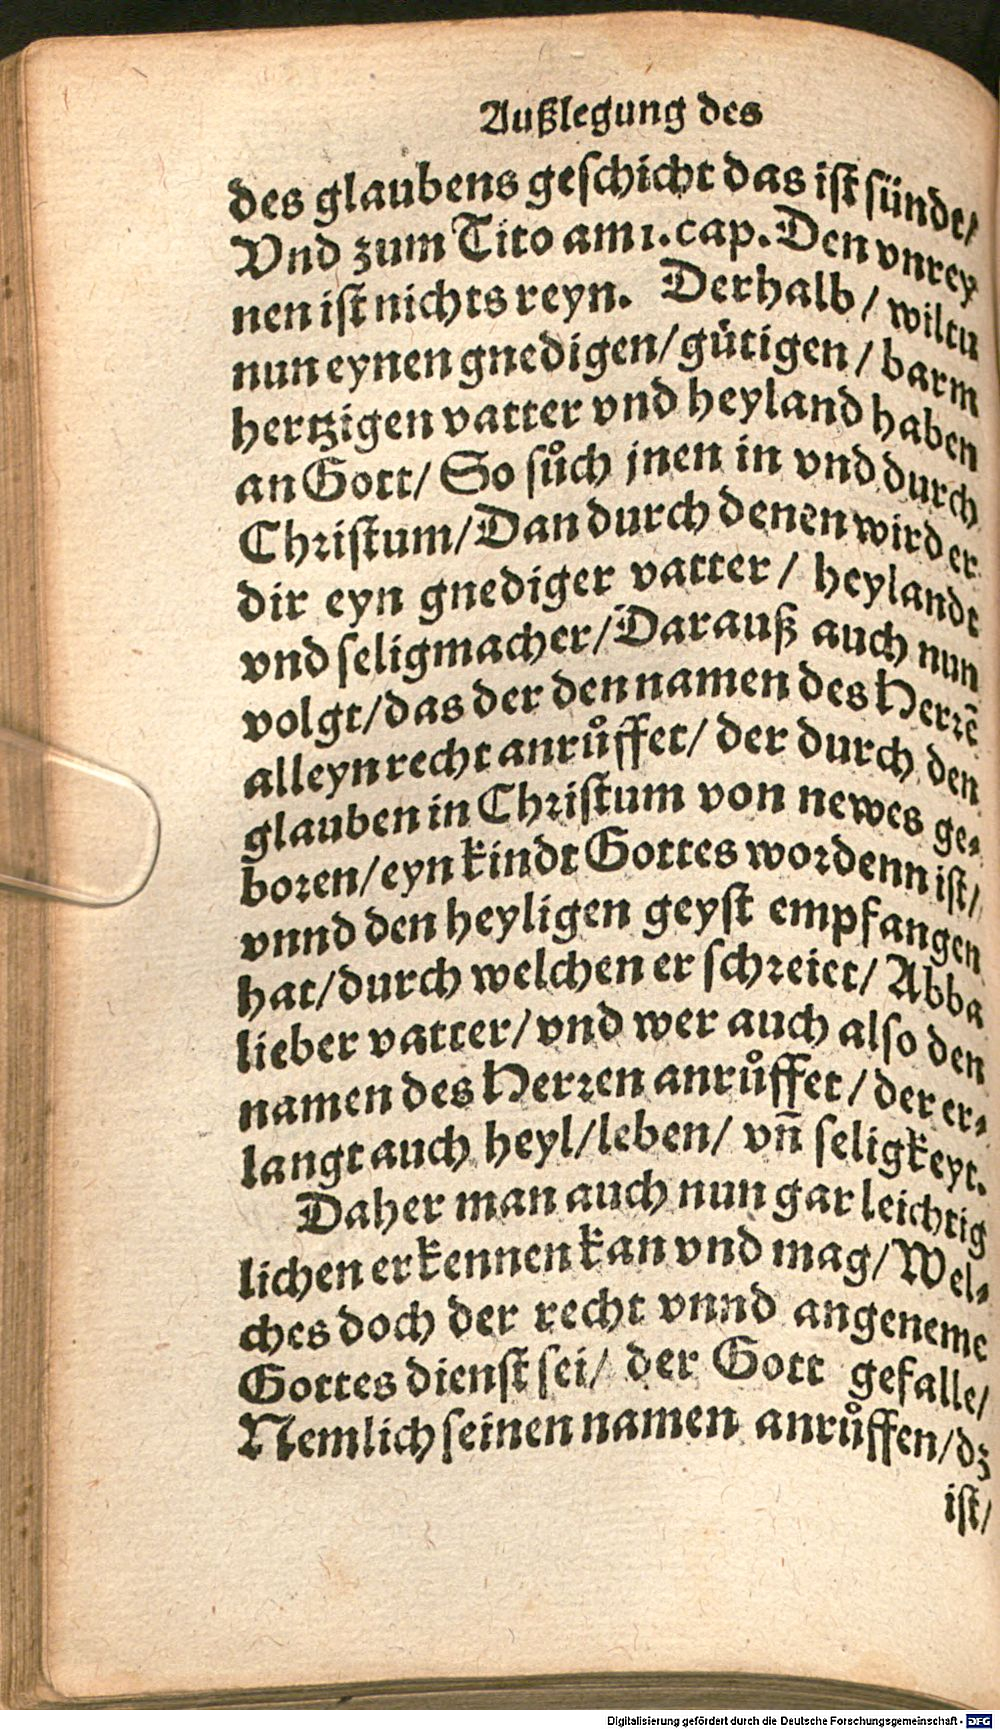 Außlegung des
des glaubens geschicht das ist sünde/
Vnd zum Tito am 1. cap. Den vnrey
nen ist nichts reyn. Derhalb / wiltu
nun eynen gnedigen/ gütigen / barm
hertzigen vatter vnd heyland haben
an Gott/ So sůch jnen in vnd durch
Christum/ Dan durch denen wird er
dir eyn gnediger vatter / heylandt
vnd seligmacher/ Darauß auch nun
volgt/ das der den namen des Herrẽ
alleyn recht anrůffet/ der durch den
glauben in Christum von newes ge⸗
boren/ eyn kindt Gottes wordenn ist/
vnnd den heyligen geyst empfangen
hat/ durch welchen er schreiet/ Abba
lieber vatter/ vnd wer auch also den
namen des Herren anrůffet / der er⸗
langt auch heyl/ leben/ vñ seligkeyt.
Daher man auch nun gar leichtig
lichen erkennen kan vnd mag/ Wel⸗
ches doch der recht vnnd angeneme
Gottes dienst sei/ der Gott gefalle/
Nemlich seinen namen anrůffen/ dz
ist/
Digitalisierung gefördert durch die Deutsche Forschungsgemeinschaft - DFG